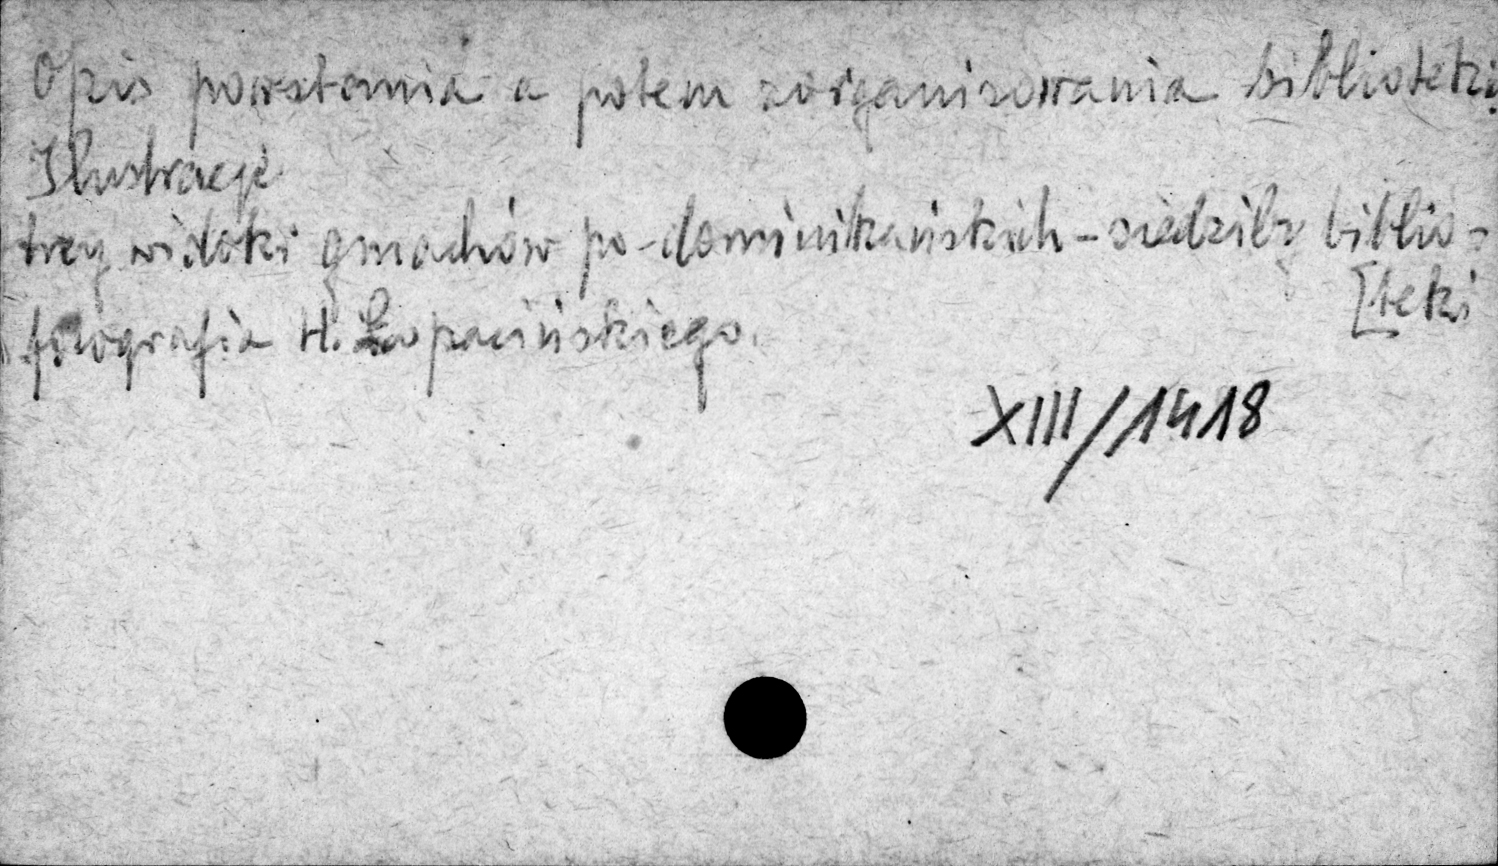 Opis powstania a potem zorganizowania biblioteki
Ilustracje
trzy widoki gmachów po-dominikańskich - siedziby biblio=
[teki
fotografia H. Łopacińskiego.
XIII/1418